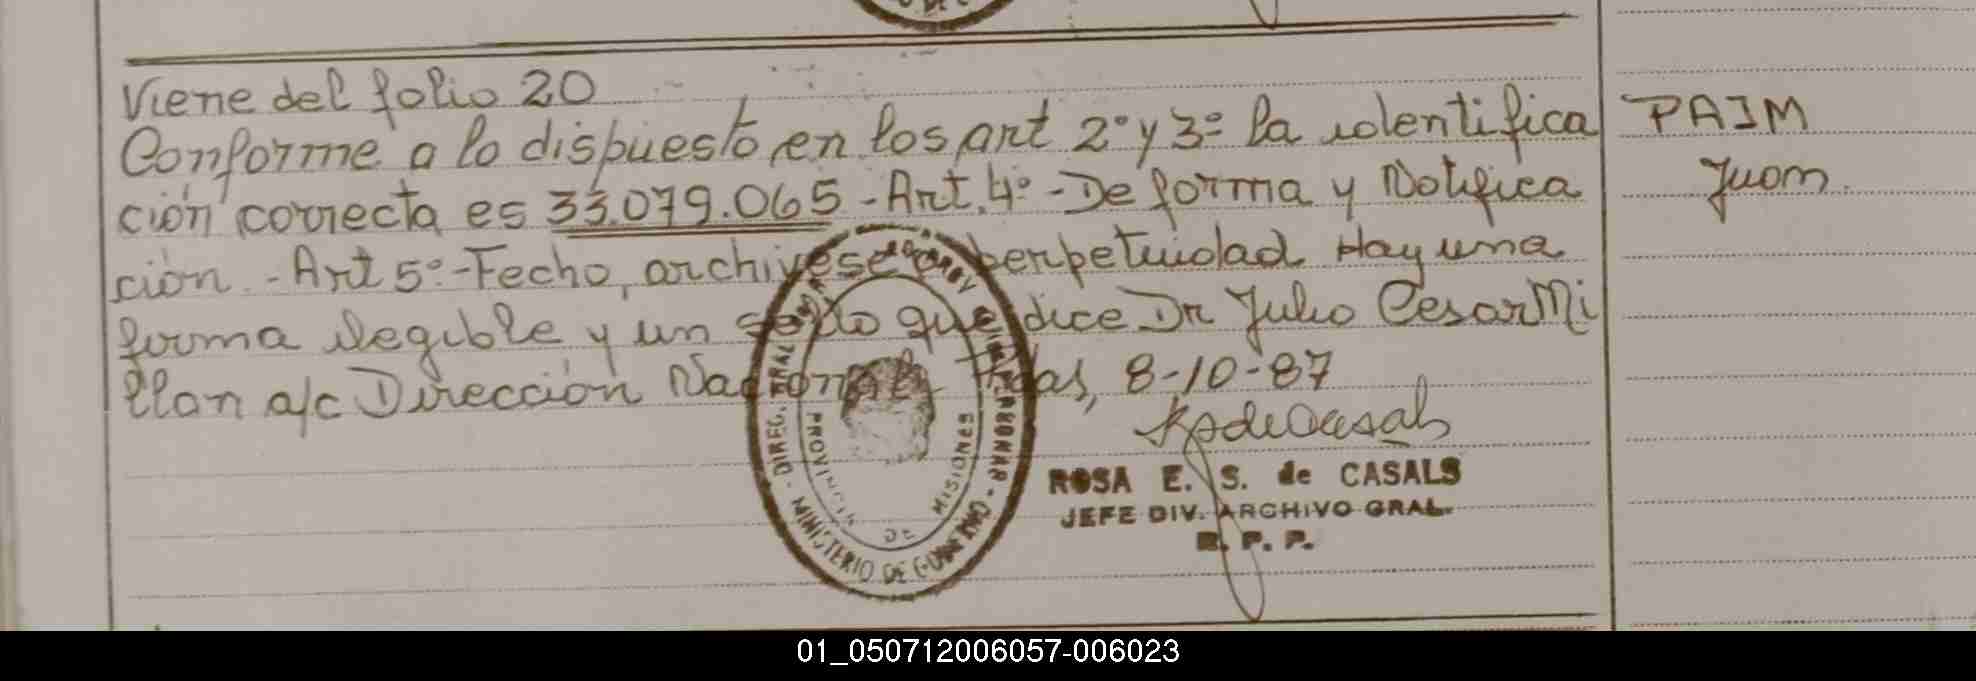 Viene del folio 20
Conforme a lo dispuesto en los art 2º y 3º la identifica
ción correcta es 33.079.065 - Art. 4º - De forma y Notifica
ción. - Art 5º - Fecho, archívese a perpetuidad Hay una
firma ilegible y un sello que dice Dr Julio Cesar Mi
llan a/c Dirección Nacional Pdas, 8-10-87
PAIM
Juan.
ROSA E. S. de CASALS
JEFE DIV. ARCHIVO GRAL.
R. P. P.
PROVINCIA DE MISIONES
MINISTERIO DE GOBIERNO
01_050712006057-006023